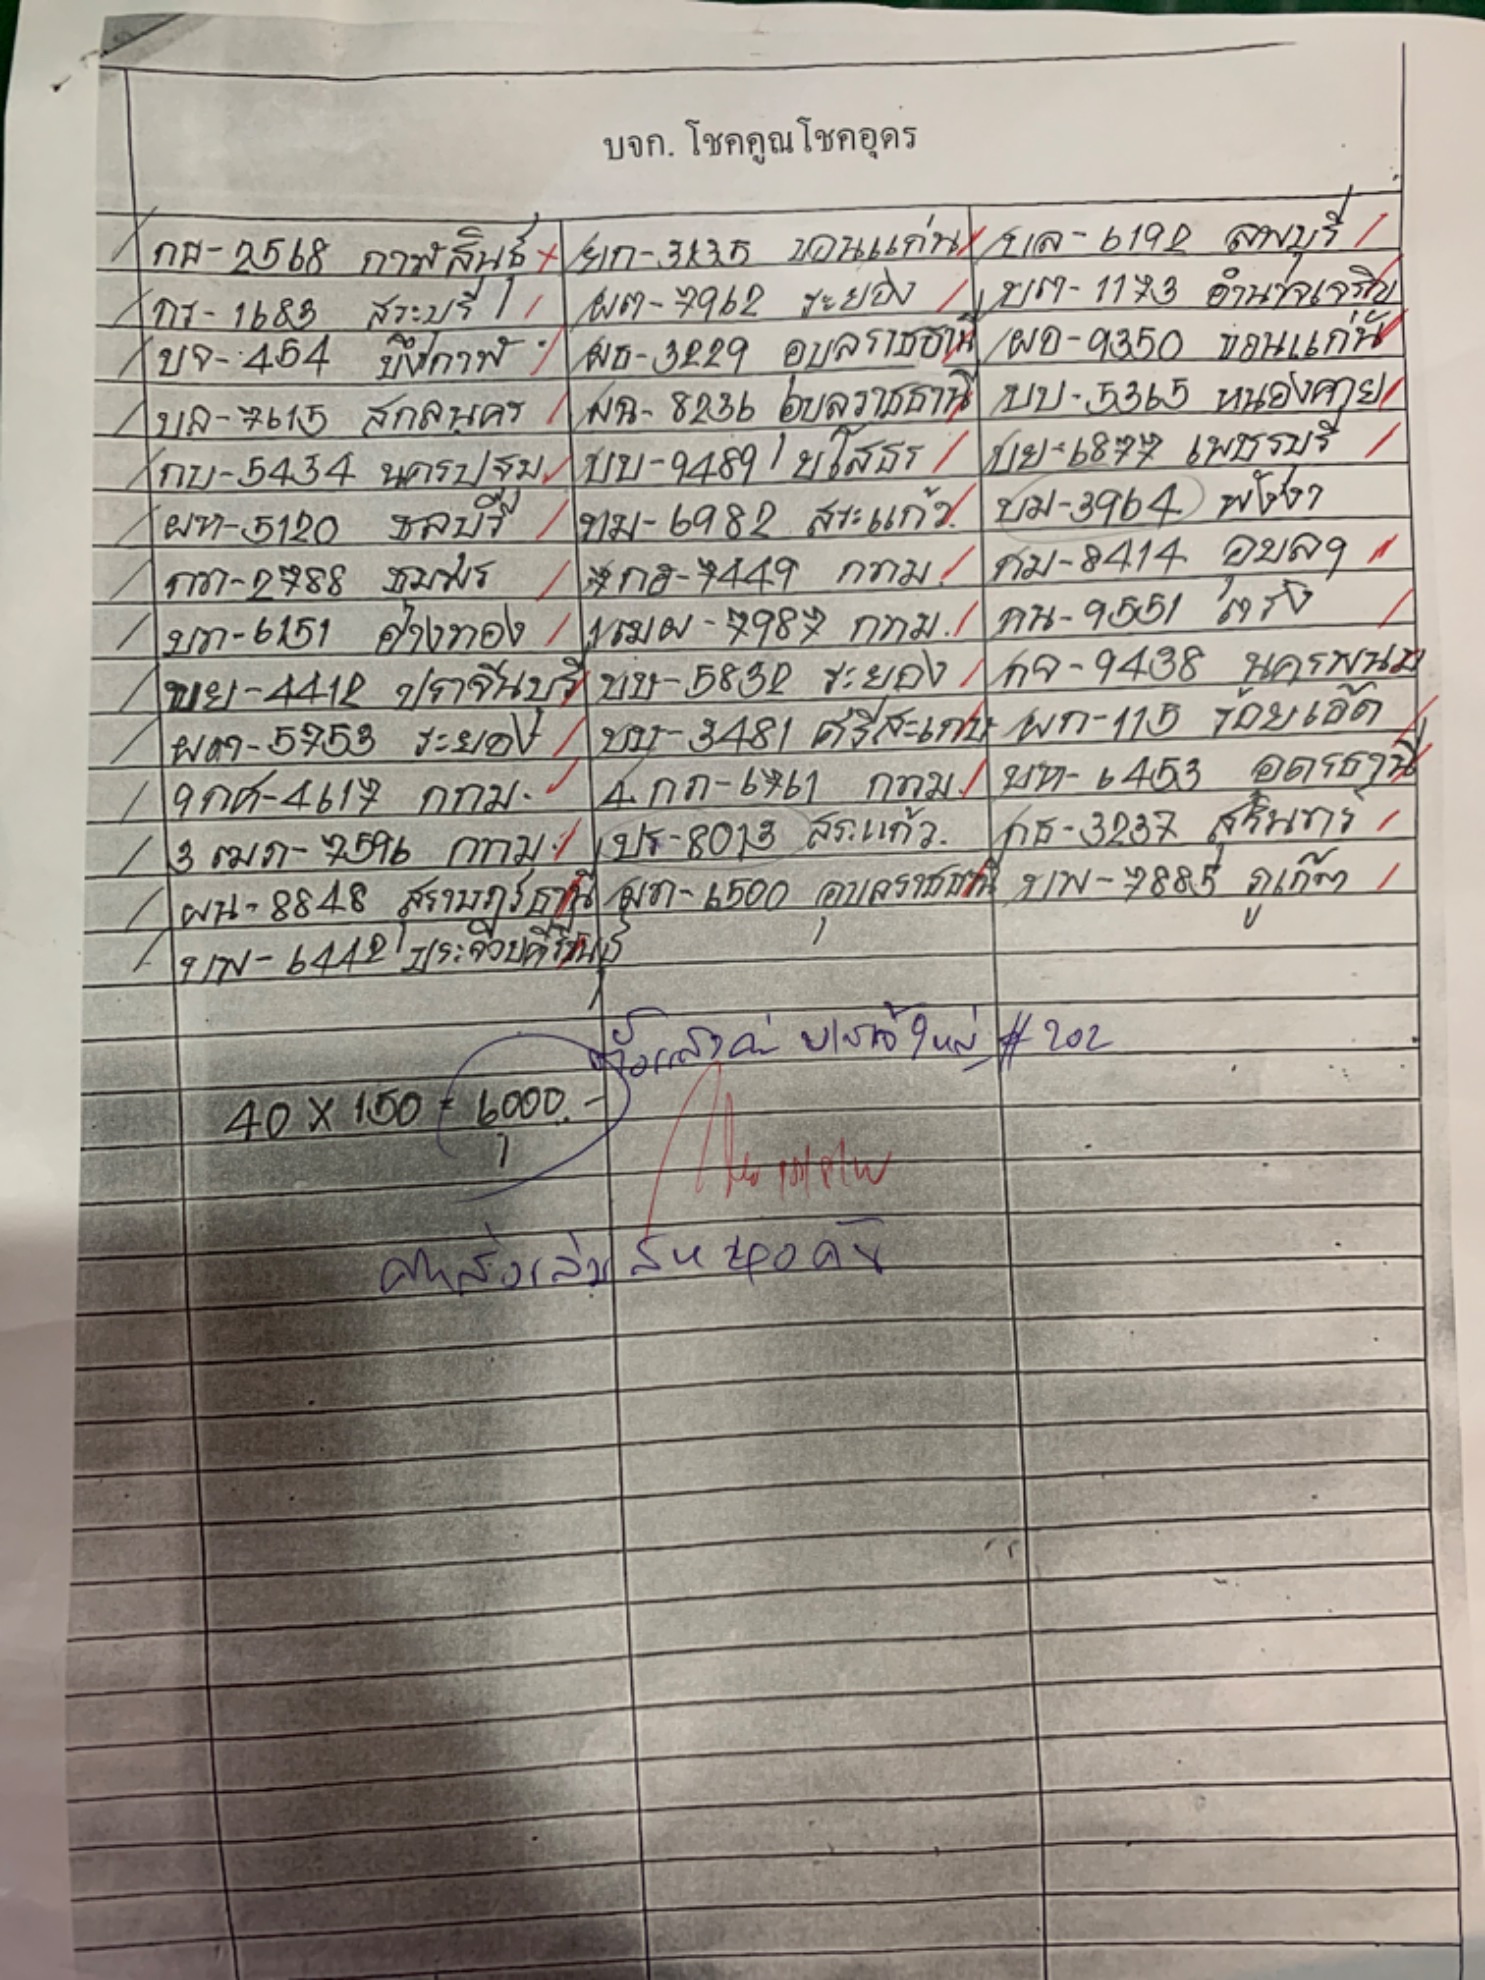 บจก. โชคคูณโชคอุดร
กส-2568 กาฬสินธุ์ ยก-3235 ขอนแก่น บล-6192 ลพบุรี
กร-1683 สระบุรี ผต-7962 ระยอง บต-1173 อำนาจเจริญ
บจ-454 บึงกาฬ ผธ-3229 อุบลราชธานี ผอ-9350 ขอนแก่น
บล-7615 สกลนคร ผฉ-8236 อุบลราชธานี บบ-5365 หนองคาย
กบ-5434 นครปฐม บบ-9489 ยโสธร บย-6877 เพชรบุรี
ผท-5120 ชลบุรี ทม-6982 สระแก้ว บม-3964 พังงา
กท-2788 ชุมพร 7กธ-7449 กทม. กม-8414 อุบลฯ
บก-6151 อ่างทอง 1ฒผ-7987 กทม. กน-9551 ตรัง
ขย-4412 ปราจีนบุรี บษ-5832 ระยอง กจ-9438 นครพนม
ผต-5753 ระยอง บบ-3481 ศรีสะเกษ ผก-115 ร้อยเอ็ด
9กศ-4617 กทม. 4กภ-6761 กทม. บท-6453 อุดรธานี
3ฒภ-7596 กทม. ปร-8013 สระแก้ว. กธ-3237 สุรินทร์
ผน-8848 สุราษฎร์ธานี ผก-6500 อุบลราชธานี บพ-7885 ภูเก็ต
บพ-6442 ประจวบคีรีขันธ์
#202
40 X 150 = 6000.-